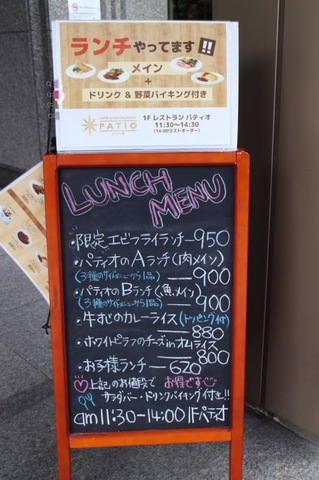 ランチやってます!!
メイン
+
ドリンク & 野菜バイキング付き
PATIO
1F レストラン パティオ
11:30〜14:30
(14:00ラストオーダー)
LUNCH
MENU
・限定エビフライランチー950
・パティオのAランチ(肉メイン)
(3種のサイドメニューから1品)ー900
・パティオのBランチ(魚メイン)
(3種のサイドメニューから1品)ー900
・牛すじのカレーライス(トッピング付)
ー880
・ホワイトピラフのチーズinオムライス
ー800
・お子様ランチー620
♡上記のお値段で お得です
サラダバー・ドリンクバイキング付き!!
am11:30-14:00 1Fパティオ